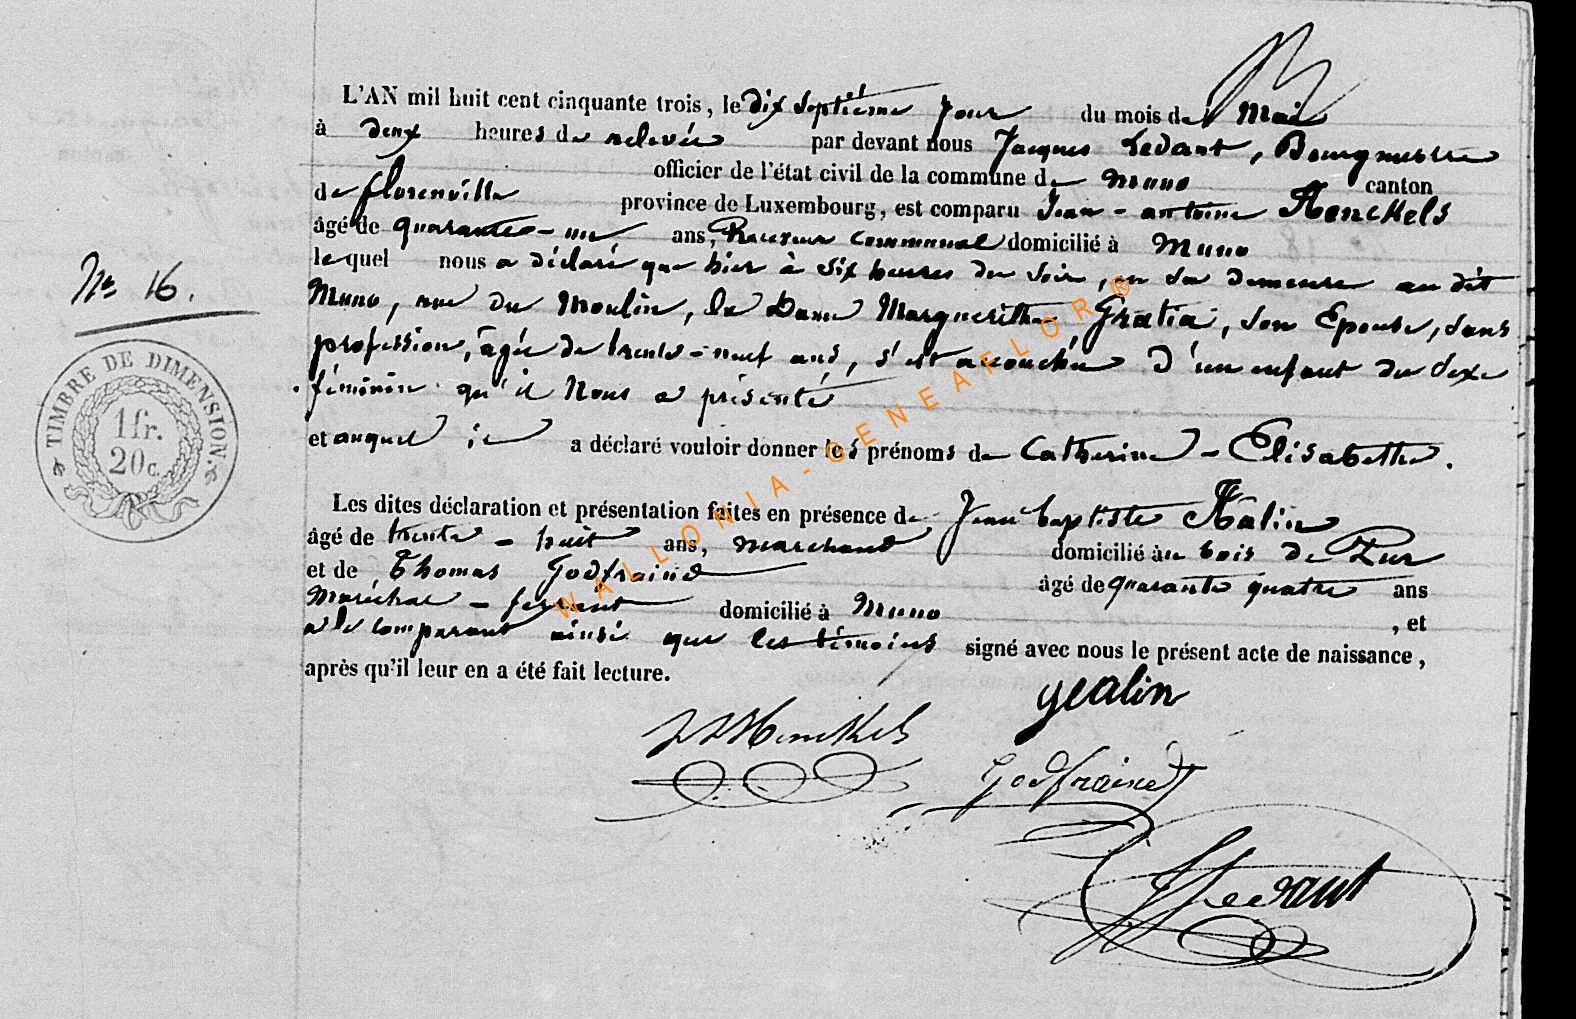 L'AN mil huit cent cinquante trois, le dix septième jour du mois de Mai
à deux heures de relevée par devant nous Jacques Ledant, Bourgmestre
officier de l'état civil de la commune de Muno canton
de florenville province de Luxembourg, est comparu Jean-antoine Henckels
âgé de quarante-un ans, Receveur communal domicilié à Muno
lequel nous a déclaré que hier à six heures du soir, en sa demeure au dit
Muno, rue du Moulin, la Dame Marguerithe Gratia, son Epouse, sans
profession, âgée de trente-neuf ans, s'est accouchée d'un enfant du sexe
féminin qu'il Nous a présenté
et auquel il a déclaré vouloir donner les prénoms de Catherine-Elisabethe.
Les dites déclaration et présentation faites en présence de Jean baptiste Halin
âgé de trente-huit ans, marchand domicilié à
et de Thomas Godfraind âgé de quarante quatre ans
Maréchal-ferrant domicilié à Muno, et
a le comparant ainsi que les témoins signé avec nous le présent acte de naissance,
après qu'il leur en a été fait lecture.
N° 16.
TIMBRE DE DIMENSION.
1 fr.
20 c.
Henckels
Godfraind
Ledant
WALLONIA-GENEAFLOR®